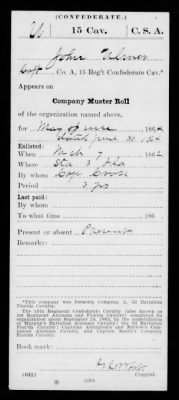 (CONFEDERATE.)
U 15 Cav. C. S. A.
John Ulmer
Co. A, 15 Reg't Confederate Cav.*
Appears on
Company Muster Roll
of the organization named above,
for May & June 1864
dated June 30 1864
Enlisted:
When Mch 7 1862
Where Sta 3 Fla
By whom Capt
Period 3 yrs
Last paid:
By whom
To what time 186
Present or absent Present
Remarks:
*This company was formerly Company A, 3d Battalion
Florida Cavalry.
The 15th Regiment Confederate Cavalry (also known as
1st Regiment Alabama and Florida Cavalry) completed its
organization about September 24, 1863, by the consolidation
of Battalion Florida Cavalry
Book mark:
(642) Copyist.